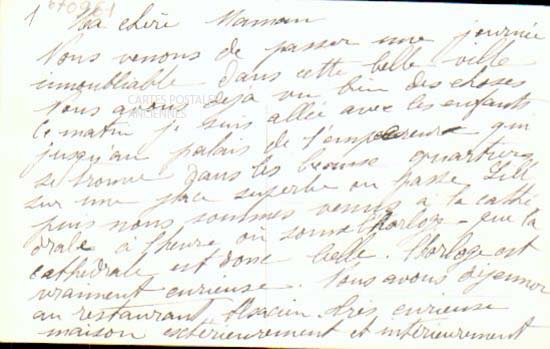 1 670961
Ma chère Maman
Nous venons de passer une journée
inoubliable dans cette belle ville
nous avons déjà vu bien des choses
CARTES POSTALES
ANCIENNES
ce matin je suis allée avec les enfants
jusqu'au palais de l'empereur qui
se trouve dans les beaux quartiers
sur une place superbe on passe
puis nous sommes venus à la cathé
drale à l'heure où sonne l'horloge que la
cathédrale est donc belle. L'horloge est
vraiment curieuse. Nous avons déjeuner
au restaurant Alsacien très curieuse
maison extérieurement et intérieurement